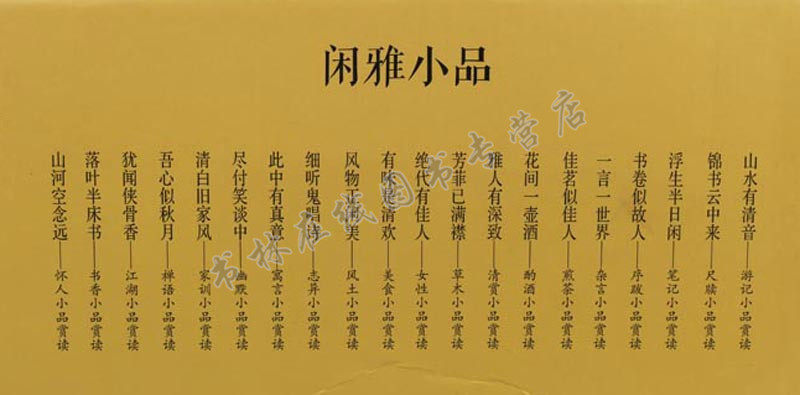 闲雅小品
山水有清音——游记小品赏读
锦书云中来——尺牍小品赏读
浮生半日闲——笔记小品赏读
书卷似故人——序跋小品赏读
一言一世界——杂言小品赏读
佳茗似佳人——煎茶小品赏读
花间一壶酒——酌酒小品赏读
雅人有深致——清赏小品赏读
芳菲已满襟——草木小品赏读
绝代有佳人——女性小品赏读
有味是清欢——美食小品赏读
风物正闲美——风土小品赏读
细听鬼唱诗——志异小品赏读
此中有真意——寓言小品赏读
尽付笑谈中——幽默小品赏读
清白旧家风——家训小品赏读
吾心似秋月——禅语小品赏读
犹闻侠骨香——江湖小品赏读
落叶半床书——书香小品赏读
山河空念远——怀人小品赏读
书林在线图书专营店